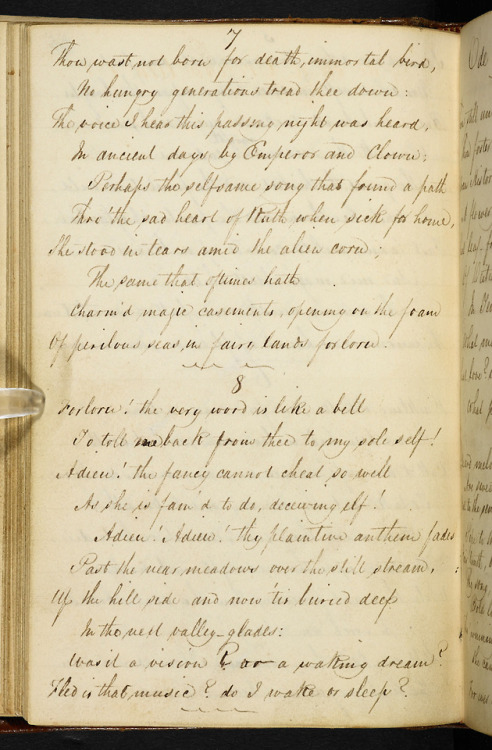 7
Thou wast not born for death, immortal bird,
No hungry generations tread thee down:
The voice I hear this passing night was heard,
In ancient days by Emperor and Clown;
Perhaps the selfsame song that found a path
Thro' the sad heart of Ruth when sick for home,
She stood in tears amid the alien corn;
The same that oftimes hath
Charm'd magic casements, opening on the foam
Of perilous seas, in fairy lands forlorn!
8
Forlorn! the very word is like a bell
To toll me back from thee to my sole self!
Adieu! the fancy cannot cheat so well
As she is fam'd to do, deceiving elf!
Adieu! Adieu! thy plaintive anthem fades
Past the near meadows over the still stream,
Up the hill side and now 'tis buried deep
In the next valley-glades:
Was it a vision? or a waking dream?
Fled is that music? do I wake or sleep?
Ode